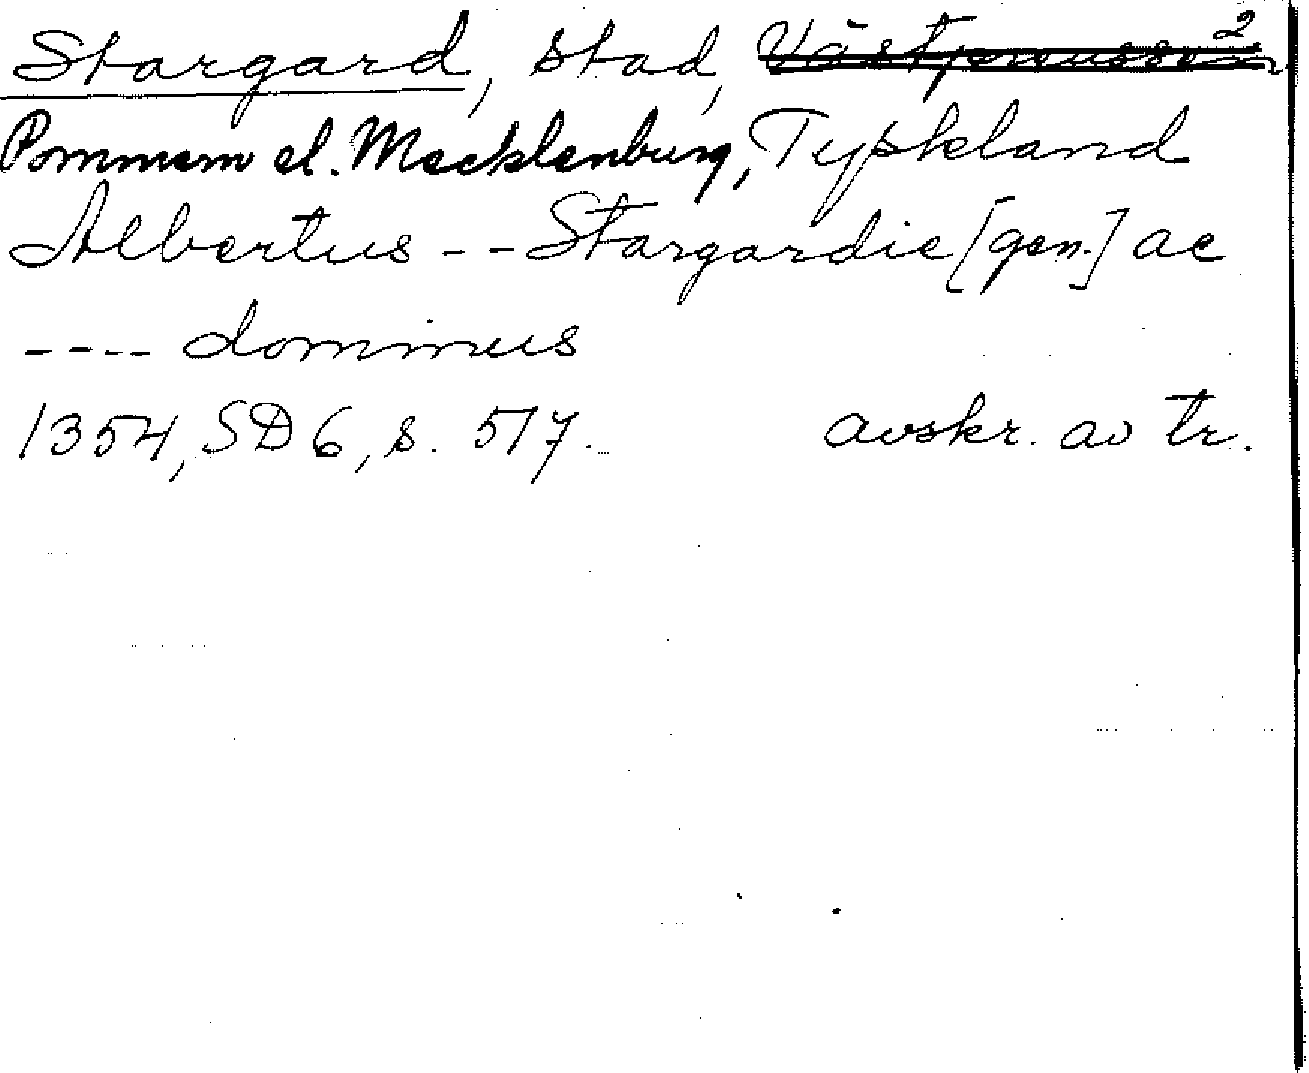 Stargard, stad, Västpreussen 2
Pommern el. Mecklenburg, Tyskland
Albertus - - Stargardie [gen.] ac
---- dominus
1354, SD 6, s. 517. avskr. av tr.